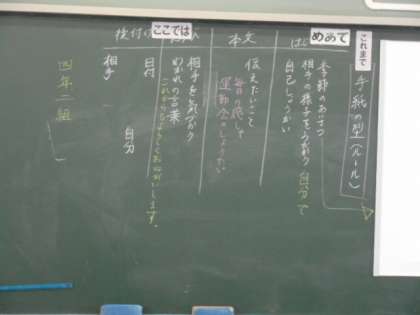 これまで
手紙の型(ルール)
めあて
はじ
季節のあいさつ
相手の様子をうかがう
自分で
自己しょうかい
本文
伝えたいこと
毎日の様子
運動会のしょうたい
ここでは
相手を気づかう
わかれの言葉
これからもよろしくおねがいします。
後付け
日付
自分
相手
四年二組